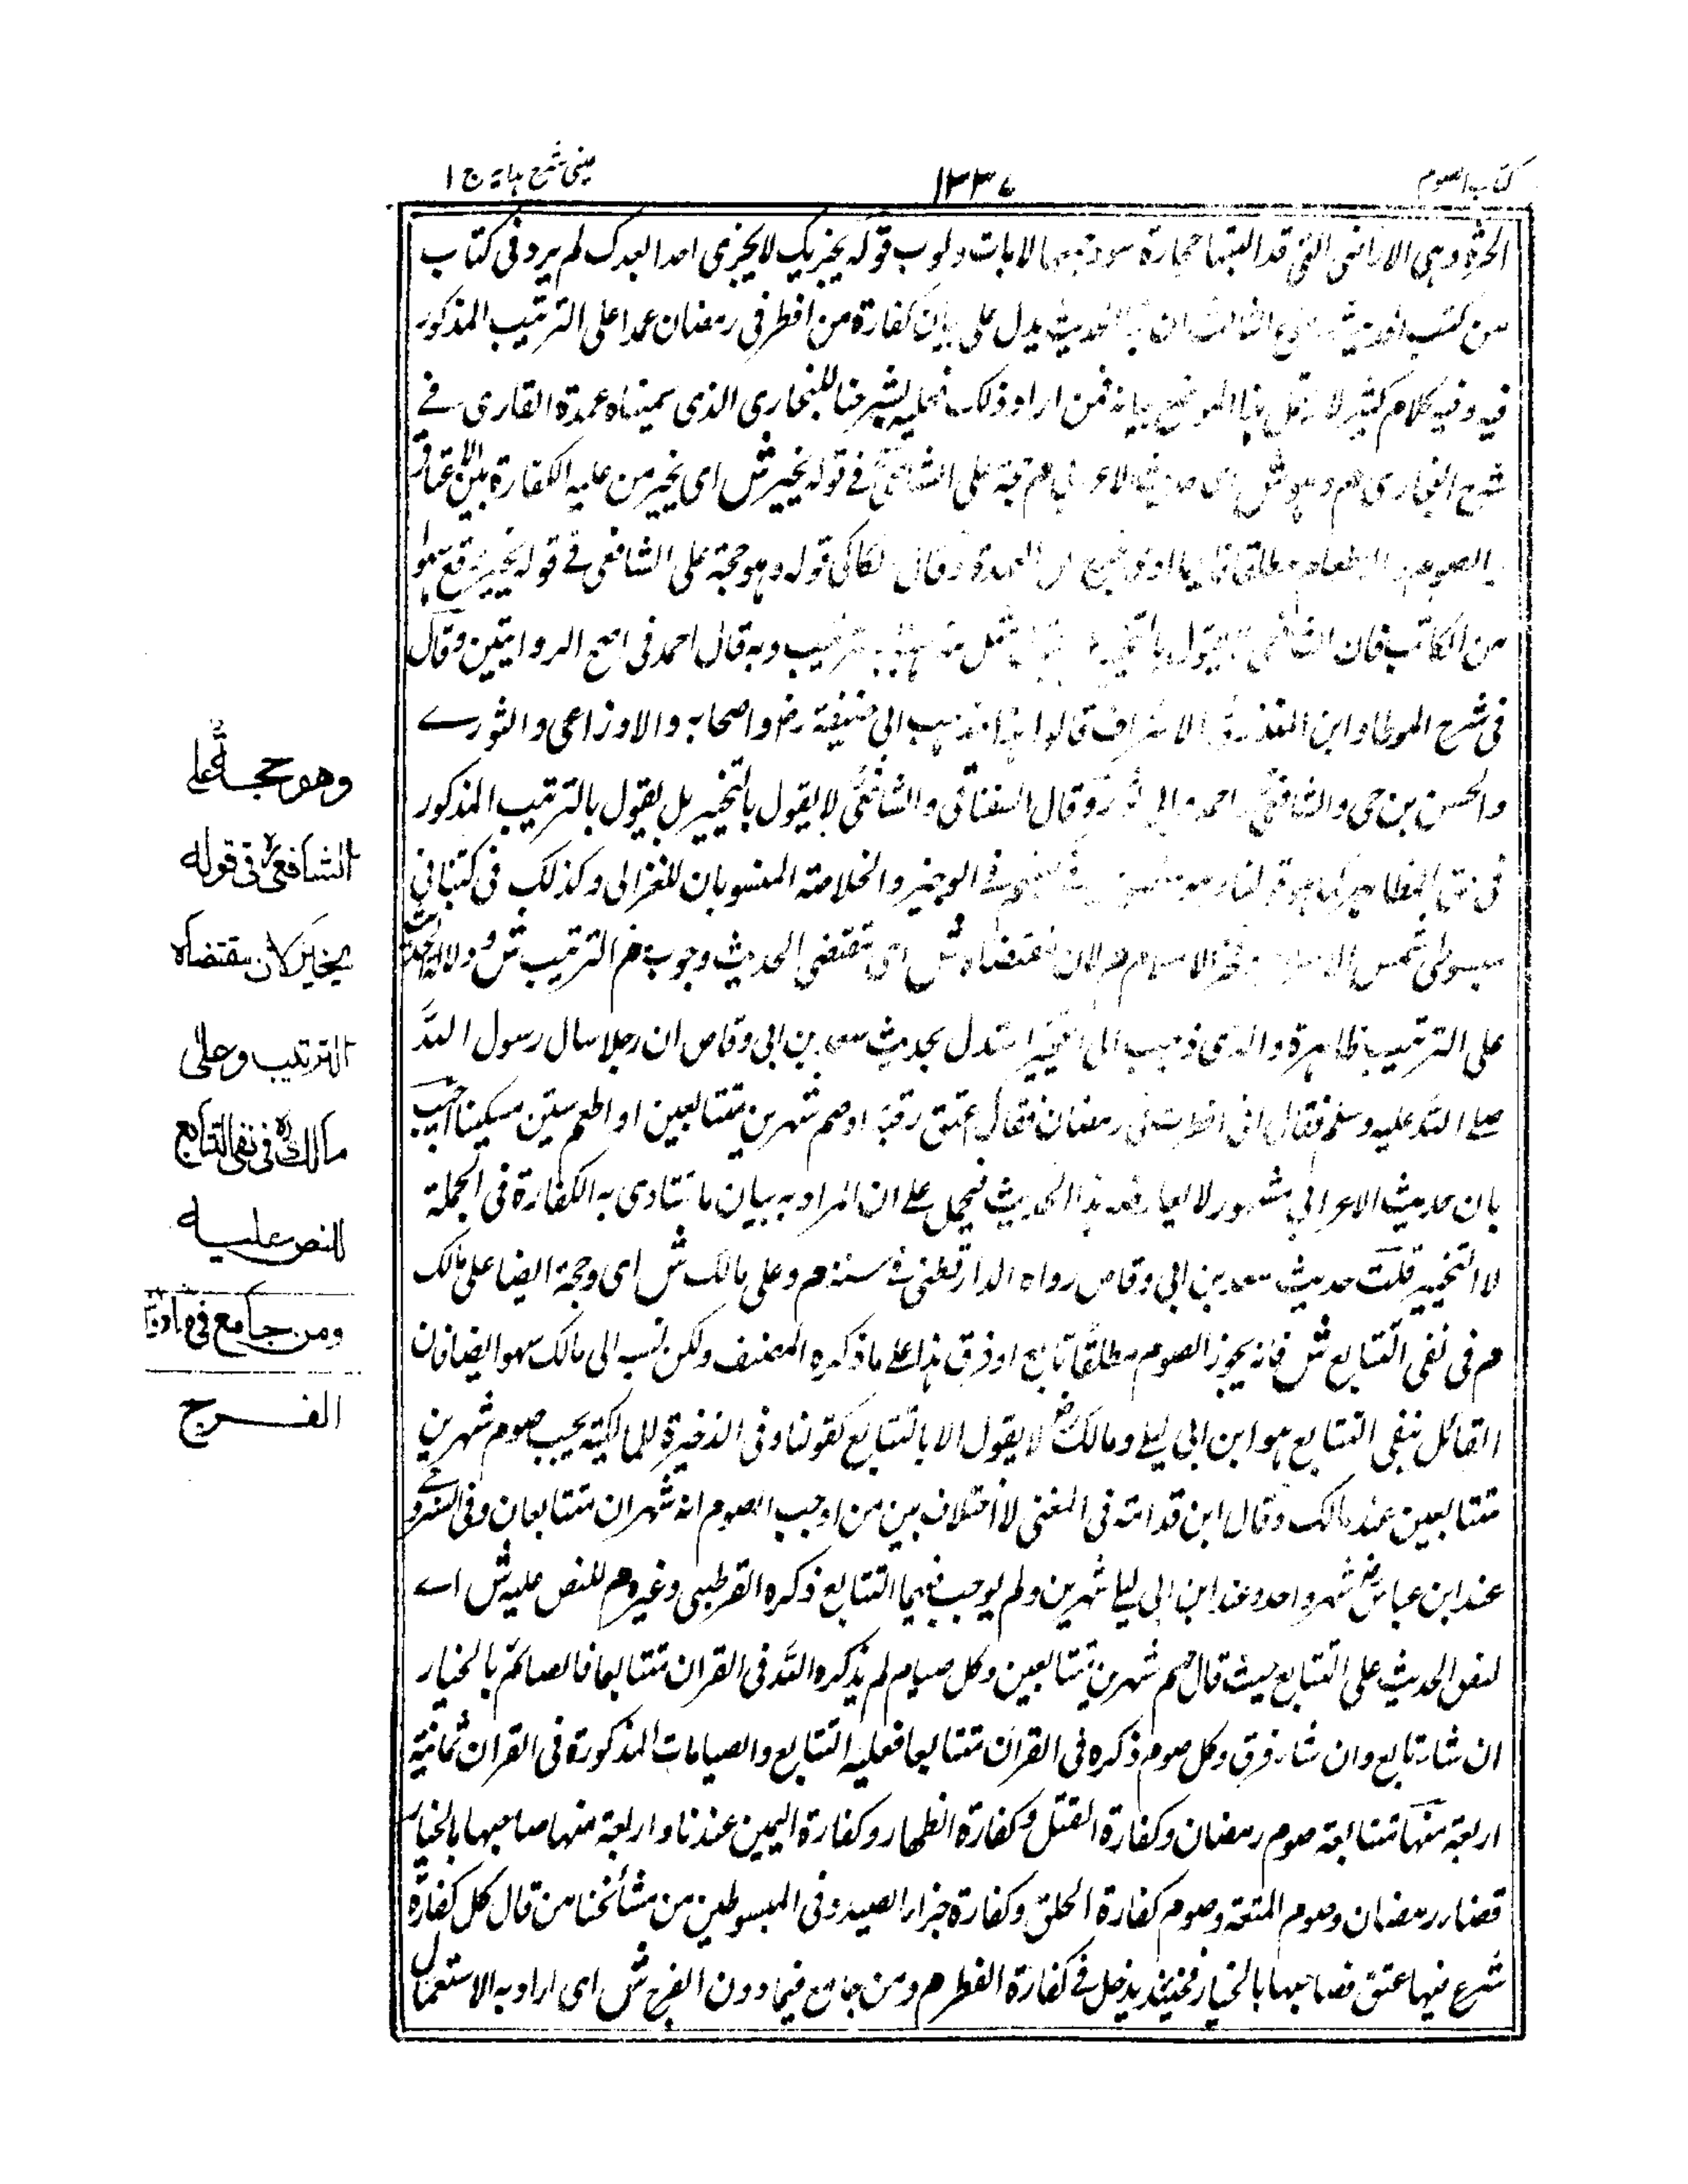 كتاب الصوم
١٣٣٧
عينى شرح هداية ج ١
الحرة وهى الاراضى التى قد البتها حجارة سود جمعها لابات ولوب قوله يجزيك لا يجزى احدا بعدك لم يرد فى كتاب
من كتب الحديث الثالث ان الحديث يدل على بيان كفارة من افطر فى رمضان عمدا على الترتيب المذكور
فيه وفيه كلام كثير لا هذا الموضع بيانه فمن اراد ذلك فعليه بشرحنا للبخارى الذى سميناه عمدة القارى فى
شرح البخارى م وهو ش اى حديث الاعرابى م حجة على الشافعى فى قوله يخير ش اى يخير من عليه الكفارة بين الاعتاق
الصوم الاطعام مطلقا وقال الكاكى قوله وهو حجة على الشافعى فى قوله يخير وقع سهوا
من الكاتب فان الشافعى يقول مثل وبه قال احمد فى اصح الروايتين وقال
فى شرح الموطا وابن المنذر فى الاشراف قالوا هذا مذهب ابى حنيفة رض واصحابه والاوزاعى والثورے
والحسن بن حى والشافعى احمد وابى ثور وقال السغناقى والشافعى لا يقول بالتخيير بل يقول بالترتيب المذكور
فى حق المظاهر كما هو قولنا فى الوجيز والخلاصة المنسوبان للغزالى وكذلك فى كتابى
مبسوطى شمس الاسلام فخر الاسلام م لان مقتضاه ش اى مقتضى الحديث وجوب م الترتيب ش ودلالة الحديث
على الترتيب ظاهرة والذى ذهب الى التخيير استدل بحديث سعد بن ابى وقاص ان رجلا سال رسول الله
صلے الله عليه وسلم فقال انى افطرت فى رمضان فقال اعتق رقبة او صم شهرين متتابعين او اطعم ستين مسكينا اجيب
بان حديث الاعرابى مشهور لا يعارضه هذا الحديث فيحمل علے ان المراد به بيان ما تتادى به الكفارة فى الجملة
لا التخيير قلت حديث سعد بن ابى وقاص رواه الدارقطنى فى سننه م وعلى مالك ش اى وحجة ايضا على مالك
م فى نفى التتابع ش فانه يجوز الصوم مطلقا تابع او فرق هذا علے ما ذكره المصنف ولكن نسبه الى مالك سهو ايضا فان
القائل بنفى التتابع هو ابن ابى ليلے ومالك رض لا يقول الا بالتتابع كقولنا وفى الذخيرة للمالكية يجب صوم شهرين
متتابعين عند مالك وقال ابن قدامة فى المغنى لا اختلاف بين من اوجب الصوم انه شهران متتابعان وفى السروجے
عند ابن عباس رض شهر واحد وعند ابن ابى ليلے شهرين ولم يوجب فيهما التتابع ذكره القرطبى وغيره م للنص عليه ش اے
لنص الحديث على التتابع حيث قال صم شهرين متتابعين وكل صيام لم يذكره الله فى القران متتابعا فالصائم بالخيار
ان شاء تابع وان شاء فرق وكل صوم ذكره فى القران متتابعا فعليه التتابع والصيامات المذكورة فى القران ثمانية
اربعة منها متتابعة صوم رمضان وكفارة القتل وكفارة الظهار وكفارة اليمين عندنا واربعة منها صاحبها بالخيار
قضاء رمضان وصوم المتعة وصوم كفارة الحلق وكفارة جزاء الصيد وفى المبسوطين من مشائخنا من قال كل كفارة
شرع فيها عتق فصاحبها بالخيار فحينئذ يدخل فى كفارة الفطر م ومن جامع فيما دون الفرج ش اى اراد به الاستعمال
وهو حجة على
الشافعى ره فى قوله
يخير لان مقتضاه
الترتيب وعلى
مالك ره فى نفى التتابع
للنص عليه
ومن جامع فيما دون
الفرج